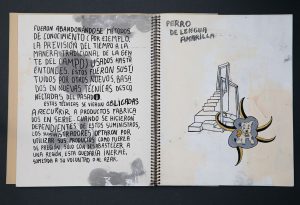 FUERON ABANDONÁNDOSE MÉTODOS
DE CONOCIMIENTO (POR EJEMPLO,
LA PREVISIÓN DEL TIEMPO A LA
MANERA TRADICIONAL DE LA GEN
TE DEL CAMPO) USADOS HASTA
ENTONCES. ESTOS FUERON SUSTI
TUIDOS POR OTROS NUEVOS, BASA
DOS EN NUEVAS TÉCNICAS DESCO
NECTADAS DEL PASADO.
ESTAS TÉCNICAS SE VIERON OBLIGADAS
A RECURRIR A PRODUCTOS FABRICA
DOS EN SERIE. CUANDO SE HICIERON
DEPENDIENTES DE ESTOS SUMINISTROS,
LOS OPTARON POR
UTILIZAR SUS PRODUCTOS COMO FUERZA
DE PRESIÓN. SÓLO CON DESABASTECER A
UNA REGIÓN, ESTA QUEDARÍA INERME,
SOMETIDA A SU VOLUNTAD O AL AZAR.
PERRO
DE LENGUA
AMARILLA